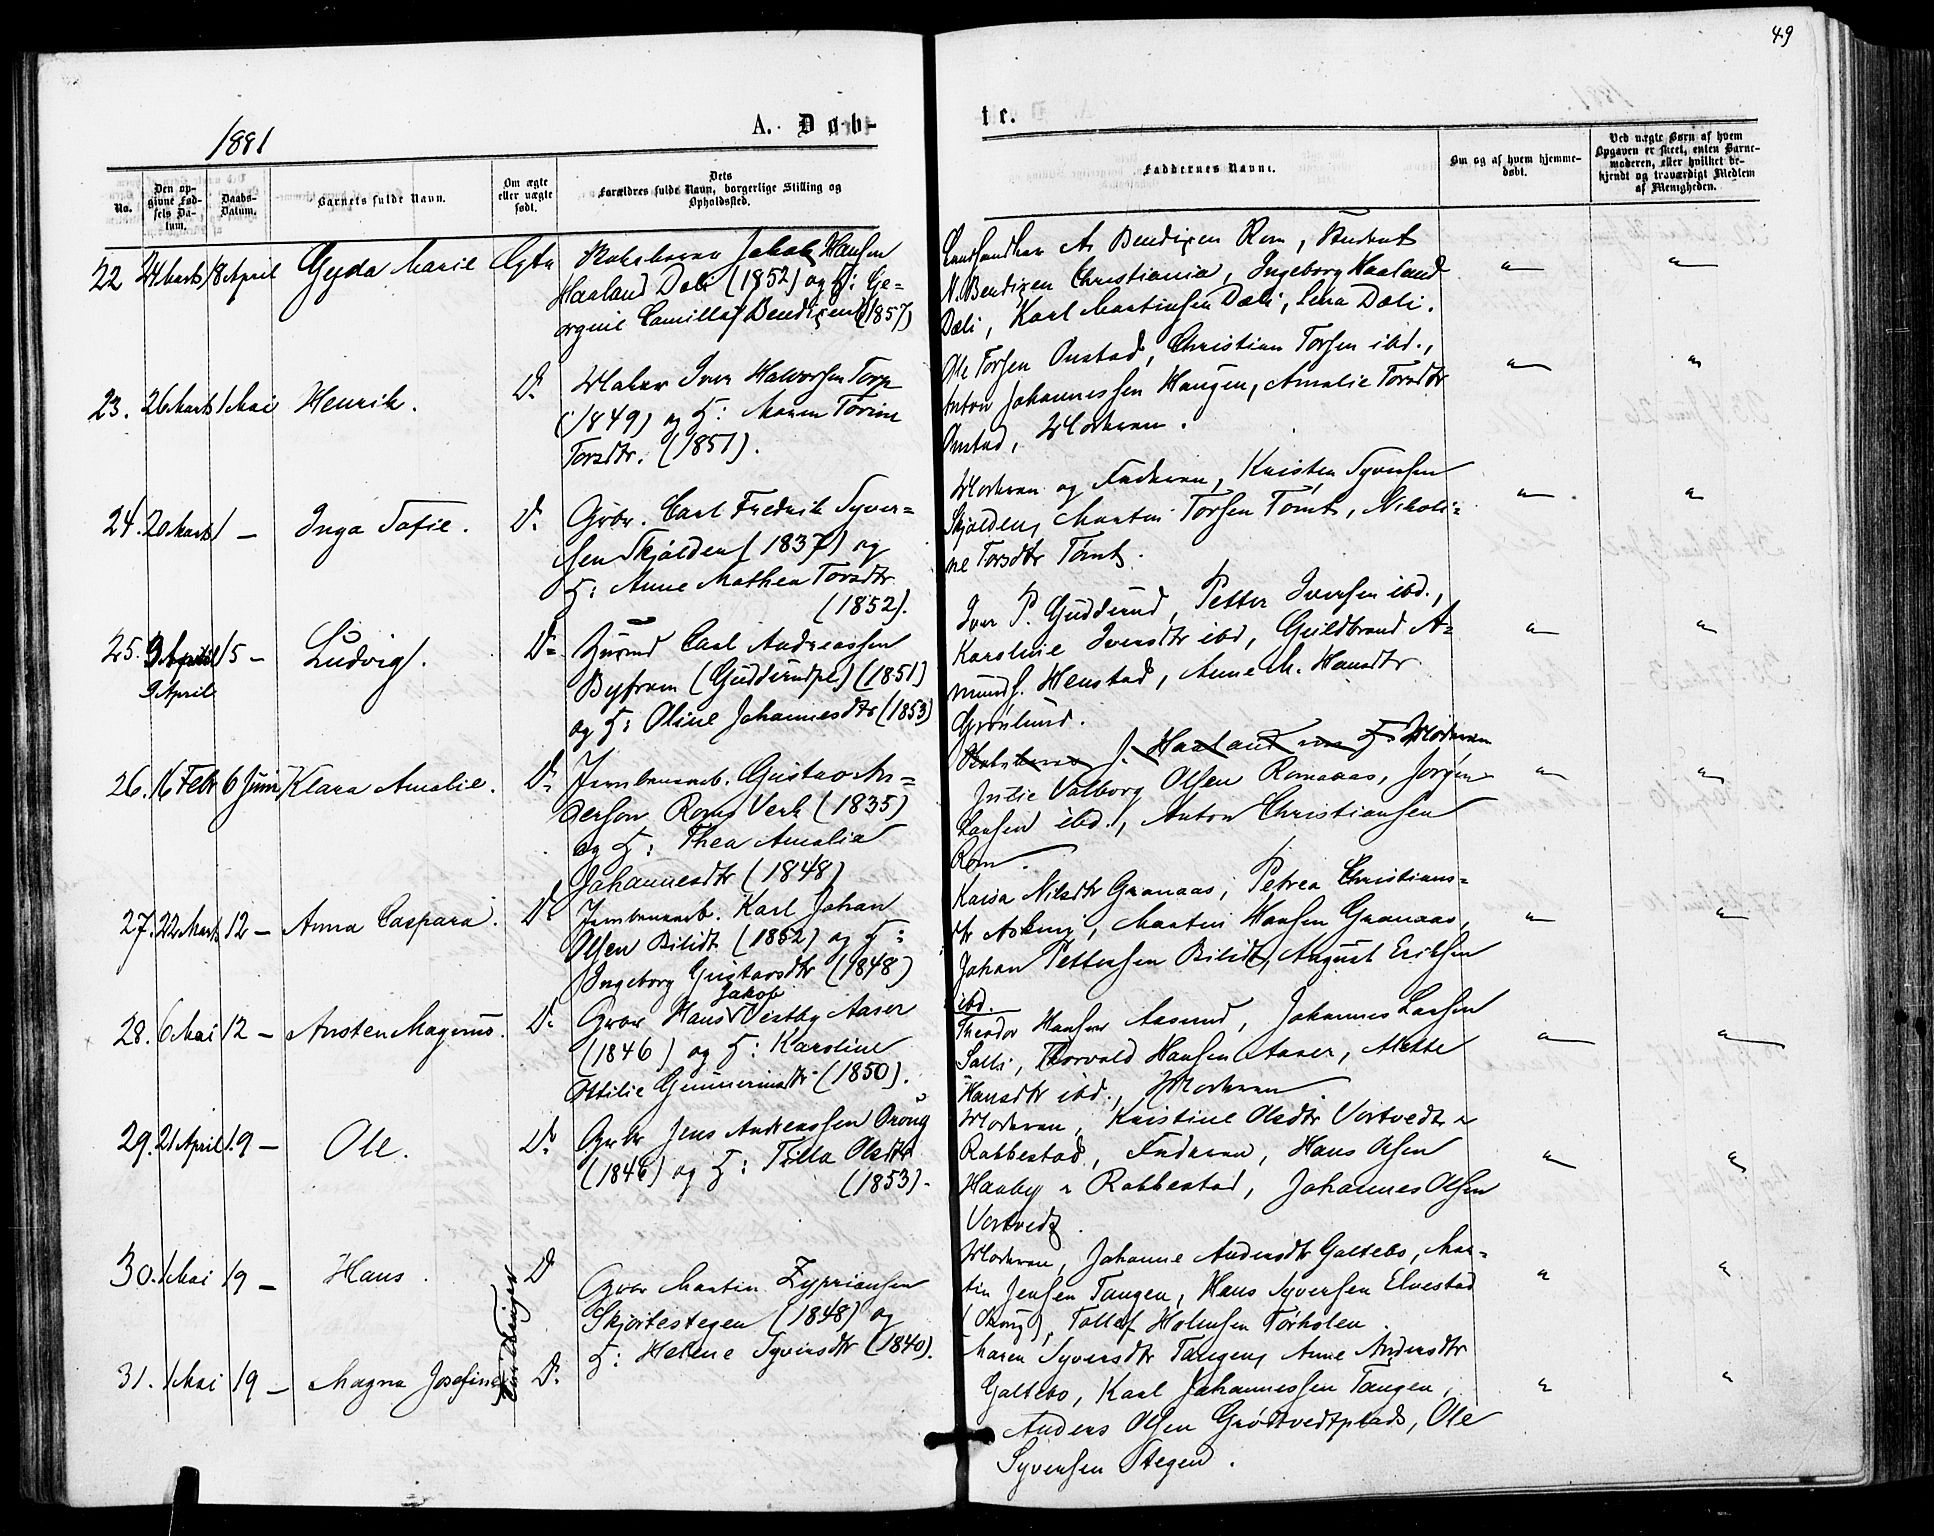 49
1881
A. Døb-
te.
No.
Den op-
givne Fød-
sels Da-
tum.
Daabs-
Datum.
Barnets fulde Navn.
Om ægte
eller uægte
født.
Dets
Forældres fulde Navn, borgerlige Stilling og
Opholdssted.
Faddernes Navne.
Om og af hvem hjemme-
døbt.
Ved uægte Børn af hvem
Opgaven er skeet, enten Barne-
moderen, eller hvilket be-
kjendt og troværdigt Medlem
af Menigheden.
22 24 Marts 18 April Gyda Marie Ægte
Jakob Hansen
Haaland Dæli (1852) og H: Ge-
orgine Camilla Bendixen (1857)
Landhandler A. Bendixen Rom, Student
N. Bendixen Christiania, Ingeborg Haaland
Dæli, Karl Martinsen Dæli, Lena Dæli.
23. 26 Marts 1 Mai Henrik. Do
Maler Iver Halvorsen Torp
(1849) og H: Maren Torine
Torsdtr. (1851).
Ole Torsen Onstad, Christian Torsen ibd.,
Anton Johannessen Haugen, Amalie Torsdtr
Onstad, Moderen.
24. 20 Marts 1 — Inga Sofie. Do
Grbr. Carl Fredrik Syver=
sen Skjolden (1837) og
H: Anne Mathea Torsdtr
(1852).
Moderen og Faderen, Kristen Syversen
Skjolden, Martin Torsen Tomt, Nikoli=
ne Torsdtr Tomt.
25. 9 April 15 — Ludvig. Do
9 April
Carl Andreassen
Byfram (Gudderudpl) (1851)
og H: Oline Johannesdtr (1853)
Iver P. Gudderud, Petter Iversen ibd.,
Karoline Iversdtr ibd, Guldbrand A=
munds. Henstad, Anne M. Hansdtr
Grønlund.
26. 16 Febr 6 Juni Klara Amalie. Do
Jernbanearb. Gustav An=
derson Roms Verk (1835)
og H: Thea Amalia
Johannesdtr (1848)
J. Haaland H. Moderen
Julie Valborg Olsen Romaaas, Jørgen
Larsen ibd., Anton Christiansen
Rom.
27. 22 Marts 12 — Anna Caspara. Do
Jernbanearb. Karl Johan
Olsen Bilidt (1852) og H:
Ingeborg Gustavsdtr (1848)
Kaisa Nilsdtr Granaas, Petrea Christians=
dtr Askim, Martin Hansen Granaas,
Johan Pettersen Bilidt, August Eriksen
ibd.
28. 6 Mai 12 — Ansten Magnus. Do
Jakob
Grbr Hans Vestby Aaser
(1846) og H: Karoline
Ottilie Gunnerinadtr (1850).
Theodor Hansen Aaserud, Johannes Larsen
Salli, Thorvald Hansen Aaser, Mette
Hansdtr ibd., Moderen
29. 21 April 19 — Ole. Do
Grbr Jens Andreassen Orong
(1846) og H: Tilla Olsdtr
(1853).
Moderen, Kristine Olsdtr Vortvedt
Rabbestad, Faderen, Hans Olsen
Haaby Rabbestad, Johannes Olsen
Vortvedt.
30. 1 Mai 19 — Hans. Do
Grbr Martin Zyprianssen
Skjortestegen (1848) og
H: Helene Syversdtr (1840).
Moderen, Johanne Andersdtr Galtebo, Mar=
tin Jensen Tangen, Hans Syversen Elvestad
(Orong), Tollef Holmsen Torholen.
31. 1 Mai 19 — Magna Josefine Do
Maren Syversdtr Tangen, Anne Andersdtr
Galtebo, Karl Johannessen Tangen,
Anders Olsen Grødtvedtplads, Ole
Syversen Stegen.